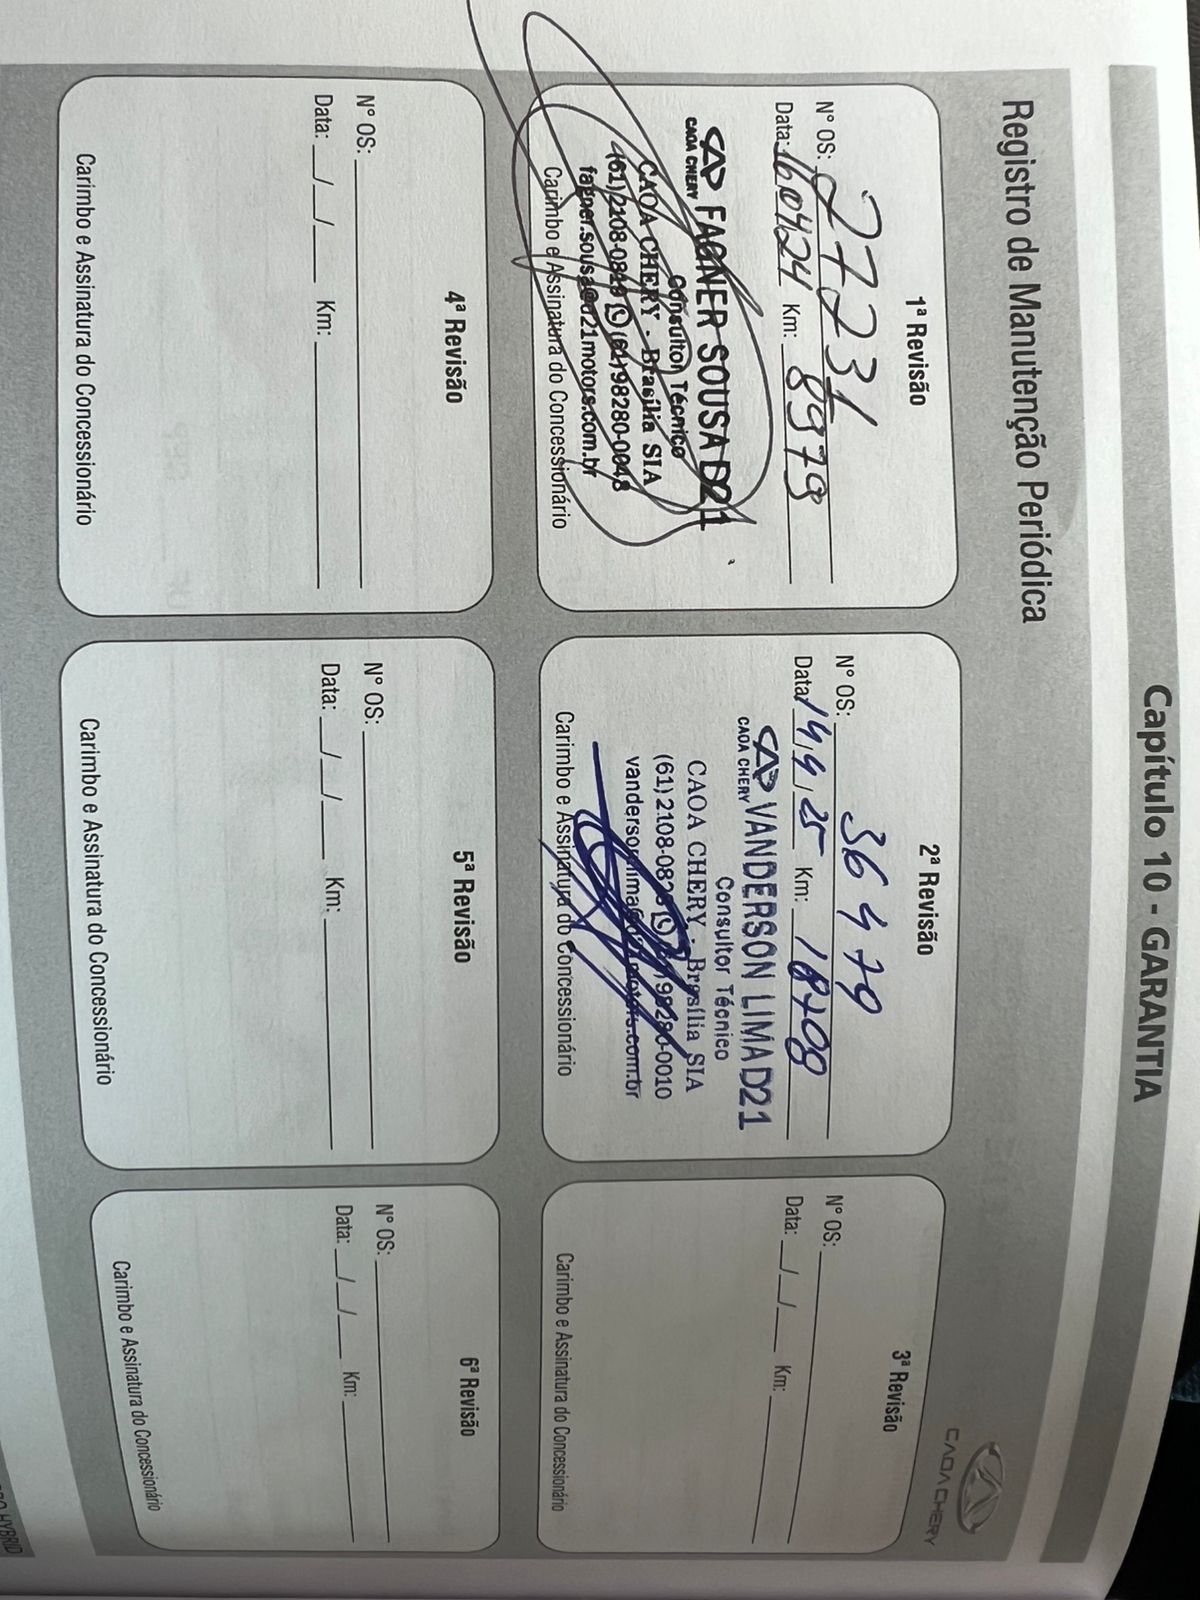 Capítulo 10 - GARANTIA
CAOA CHERY
Registro de Manutenção Periódica
1ª Revisão
N° OS: 27231
Data: 16/04/24 Km: 8979
CAOA CHERY FAGNER SOUSA D21
Consultor Técnico
CAOA CHERY - Brasília SIA
fagner.sousa@d21motors.com.br
Carimbo e Assinatura do Concessionário
2ª Revisão
N° OS: 36479
Data: 14/4/25 Km: 18708
CAOA CHERY VANDERSON LIMA D21
Consultor Técnico
CAOA CHERY - Brasília SIA
Carimbo e Assinatura do Concessionário
3ª Revisão
N° OS:
Data: __/__/__ Km:
Carimbo e Assinatura do Concessionário
4ª Revisão
N° OS:
Data: __/__/__ Km:
Carimbo e Assinatura do Concessionário
5ª Revisão
N° OS:
Data: __/__/__ Km:
Carimbo e Assinatura do Concessionário
6ª Revisão
N° OS:
Data: __/__/__ Km:
Carimbo e Assinatura do Concessionário
HYBRID